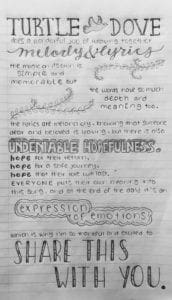 TURTLE DOVE
does a wonderful job of weaving together
melody & lyrics
the musical itself is
simple and
memorable but
the words have so much
depth and
meaning too.
the lyrics are melancholy, knowing that someone
dear and beloved is leaving, but there is also
UNDENIABLE HOPEFULNESS.
hope for their return,
hope for a safe journey,
hope that their love will last.
EVERYONE puts their own meaning into
this song, and at the end of the day it's an
expression
of emotions
which is why I'm so thankful and excited to
SHARE THIS
WITH YOU.